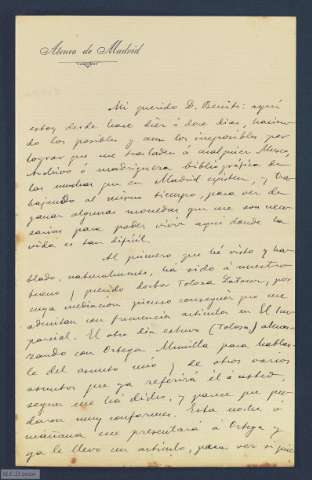 Ateneo de Madrid
Mi querido D. Benito: aquí
estoy desde hace diez ó doce dias, hacien-
do los posibles y aun los imposibles por
lograr que me trasladen á cualquier Museo,
Archivo ó madriguera bibliográfica de
las muchas que en Madrid existen, y tra-
bajando al mismo tiempo, para ver de
ganar algunas monedas que me son nece-
sarias para poder vivir aquí donde la
vida es tan dificil.
Al primero que hé visto y ha-
blado, naturalmente, ha sido á nuestro
bueno y querido doctor Tolosa Latour, por
cuya mediacion pienso conseguir que me
admitan con frecuencia artículos en El Im-
parcial. El otro dia estuvo (Tolosa) almor-
zando con Ortega Munilla para hablar-
le del asunto mio y de otros varios
asuntos que ya referirá él á usted,
segun me há dicho, y parece que que-
daron muy conformes. Esta noche ó
mañana me presentará á Ortega y
ya le llevo un artículo, para ver si